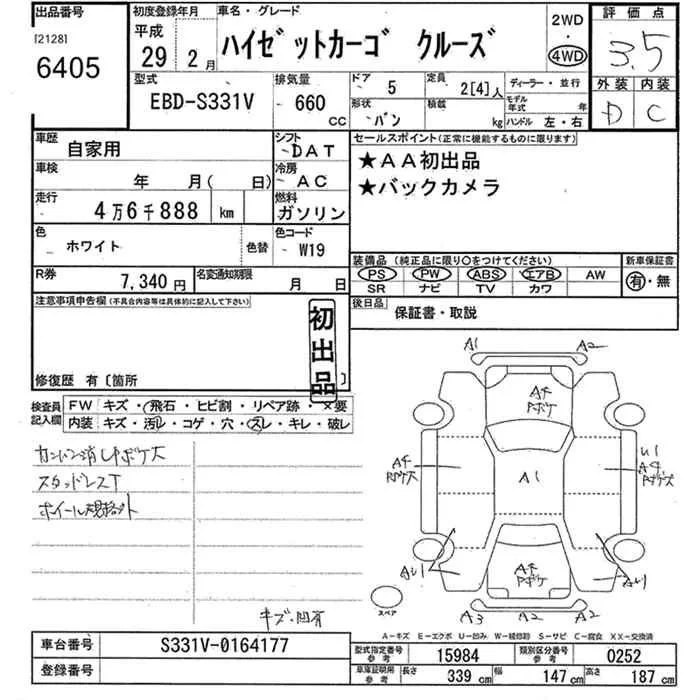 出品番号
[2128]
6405
初度登録年月
平成
29年 2月
車名・グレード
ハイゼットカーゴ クルーズ
2WD
・
4WD
評価点
3.5
外装 内装
D C
型式
EBD-S331V
排気量
660 CC
ドア 5
定員 2[4]人
形状 バン
積載 kg
ディーラー・並行
モデル年式 年
ハンドル 左・右
車歴 自家用
シフト DAT
車検 年 月( 日)
冷房 AC
走行 4万6千888 km
燃料 ガソリン
色 ホワイト 色替
色コード W19
R券 7,340円
名変通知期限 月 日
セールスポイント(正常に機能するものに限ります)
★AA初出品
★バックカメラ
装備品(純正品に限り○をつけてください)
新車保証書
PS PW ABS エアB AW
SR ナビ TV カワ
有・無
後日品 保証書・取説
注意事項申告欄(不具合内容等は具体的に記入して下さい)
初出品
修復歴 有〔箇所 〕
検査員記入欄
FW キズ・飛石・ヒビ割・リペア跡・×要
内装 キズ・汚レ・コゲ・穴・スレ・キレ・破レ
カンバン消しサボケ大
スタッドレスT
ホイール規格外
キズ・凹有
A1 A2
Aサ
Pボケ
A1
Aサ
Pボケ大
U1
Aサ
Pボケ大
Aサ
Pボケ
AU1 AU1
A3 A2 A2
スペア
A-キズ E-エクボ U-凹み W-補修跡 S-サビ C-腐食 XX-交換済
車台番号 S331V-0164177
登録番号
型式指定番号 参考 15984
類別区分番号 参考 0252
車庫証明用 参考 長さ 339cm 幅 147cm 高さ 187cm